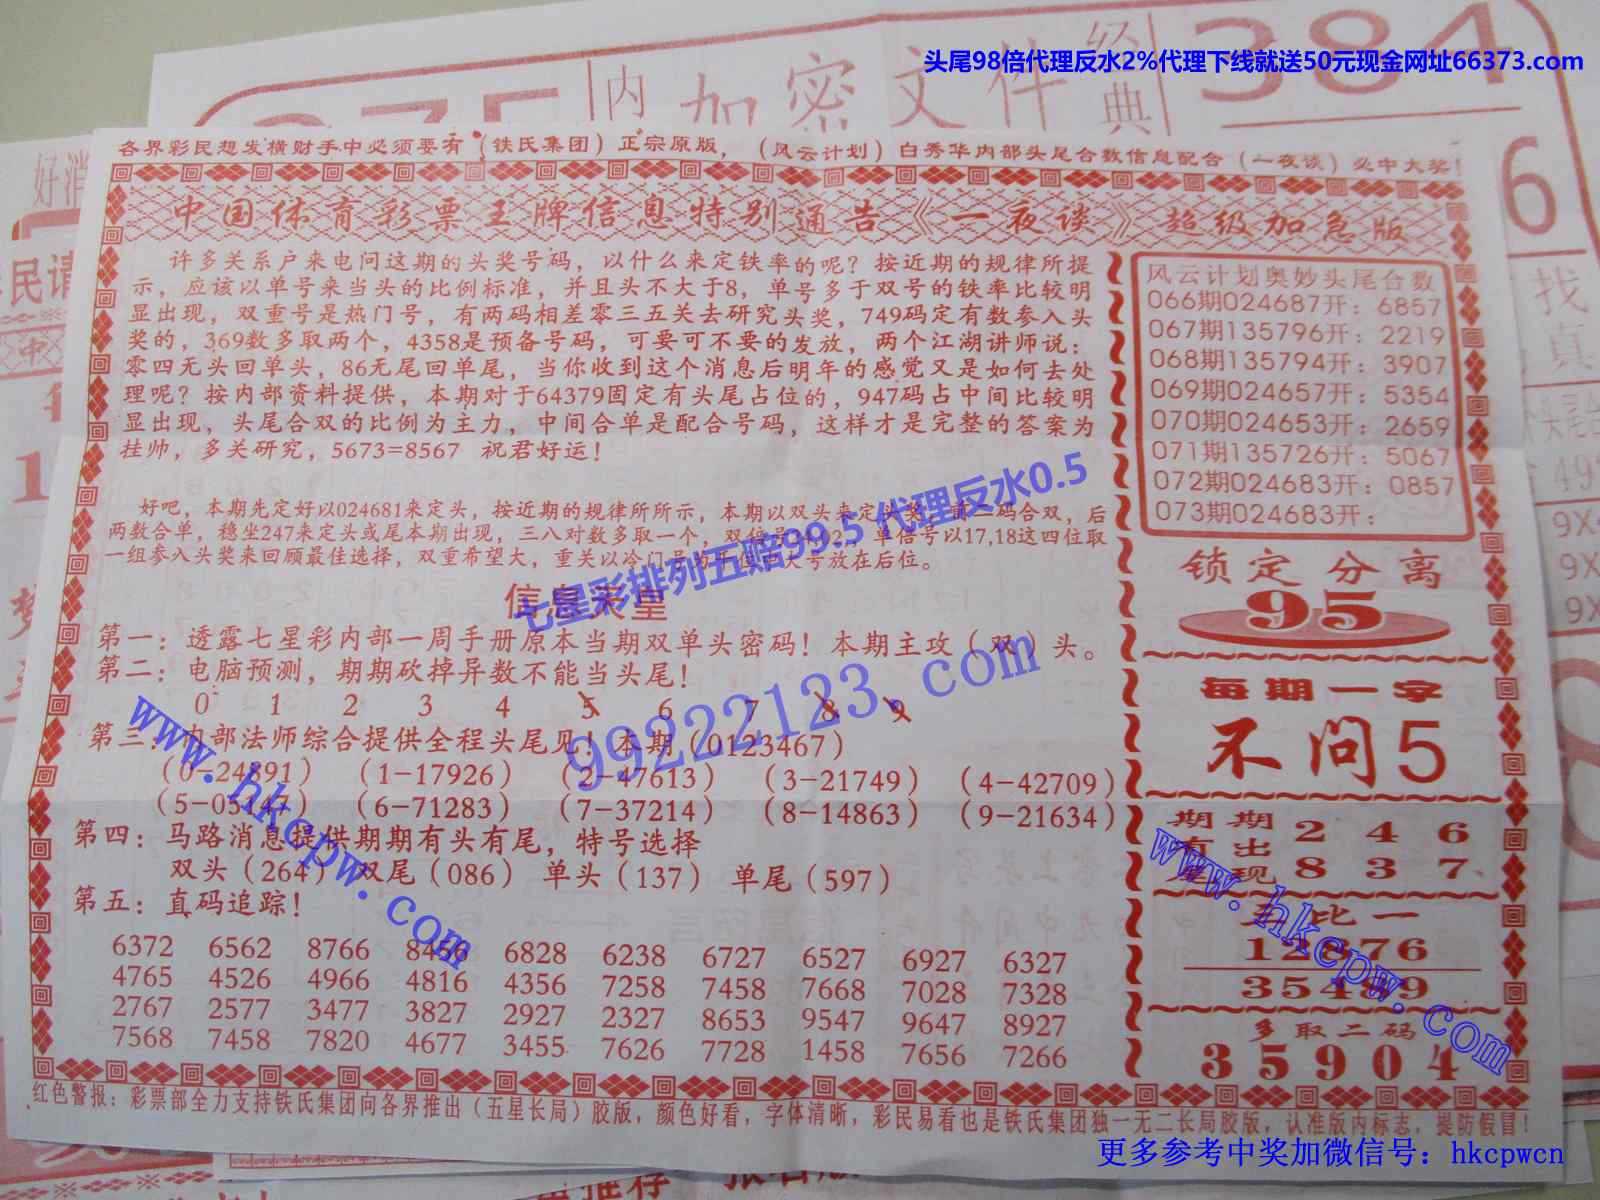 头尾98倍代理反水2%代理下线就送50元现金网址66373.com
内
加密文件
经典
384
6
各界彩民想发横财手中必须要有（铁氏集团）正宗原版，（风云计划）白秀华内部头尾合数信息配合（一夜谈）必中大奖！
中国体育彩票王牌信息特别通告《一夜谈》超级加急版
许多关系户来电问这期的头奖号码，以什么来定铁率的呢？按近期的规律所提
示，应该以单号来当头的比例标准，并且头不大于8，单号多于双号的铁率比较明
显出现，双重号是热门号，有两码相差零三五关去研究头奖，749码定有数参入头
奖的，369数多取两个，4358是预备号码，可要可不要的发放，两个江湖讲师说：
零四无头回单头，86无尾回单尾，当你收到这个消息后明年的感觉又是如何去处
理呢？按内部资料提供，本期对于64379固定有头尾占位的，947码占中间比较明
显出现，头尾合双的比例为主力，中间合单是配合号码，这样才是完整的答案为
挂帅，多关研究，5673=8567 祝君好运！
好吧，本期先定好以024681来定头，按近期的规律所所示，本期以双头来定头奖，前二码合双，后
两数合单，稳坐247来定头或尾本期出现，三八对数多取一个，双倍号 单倍号以17,18这四位取
一组参入头奖来回顾最佳选择，双重希望大，重关以冷门号为 大号放在后位。
七星彩排列五赔99.5 代理反水0.5
信息天皇
第一：透露七星彩内部一周手册原本当期双单头密码！本期主攻（双）头。
第二：电脑预测，期期砍掉异数不能当头尾！
0 1 2 3 4 5 6 7 8 9
第三：内部法师综合提供全程头尾见！本期（0123467）
（0-24891）（1-17926）（2-47613）（3-21749）（4-42709）
（5-05147）（6-71283）（7-37214）（8-14863）（9-21634）
第四：马路消息提供期期有头有尾，特号选择
双头（264）双尾（086）单头（137）单尾（597）
第五：直码追踪！
6372 6562 8766 8456 6828 6238 6727 6527 6927 6327
4765 4526 4966 4816 4356 7258 7458 7668 7028 7328
2767 2577 3477 3827 2927 2327 8653 9547 9647 8927
7568 7458 7820 4677 3455 7626 7728 1458 7656 7266
风云计划奥妙头尾合数
066期024687开：6857
067期135796开：2219
068期135794开：3907
069期024657开：5354
070期024653开：2659
071期135726开：5067
072期024683开：0857
073期024683开：
锁定分离
95
每期一字
不问5
期期 2 4 6
有出
现 8 3 7
比一
12876
35489
多取二码
35904
红色警报：彩票部全力支持铁氏集团向各界推出（五星长局）胶版，颜色好看，字体清晰，彩民易看也是铁氏集团独一无二长局胶版，认准版内标志，提防假冒！
www.hkcpw.com
99222123.com
www.hkcpw.com
更多参考中奖加微信号：hkcpwcn